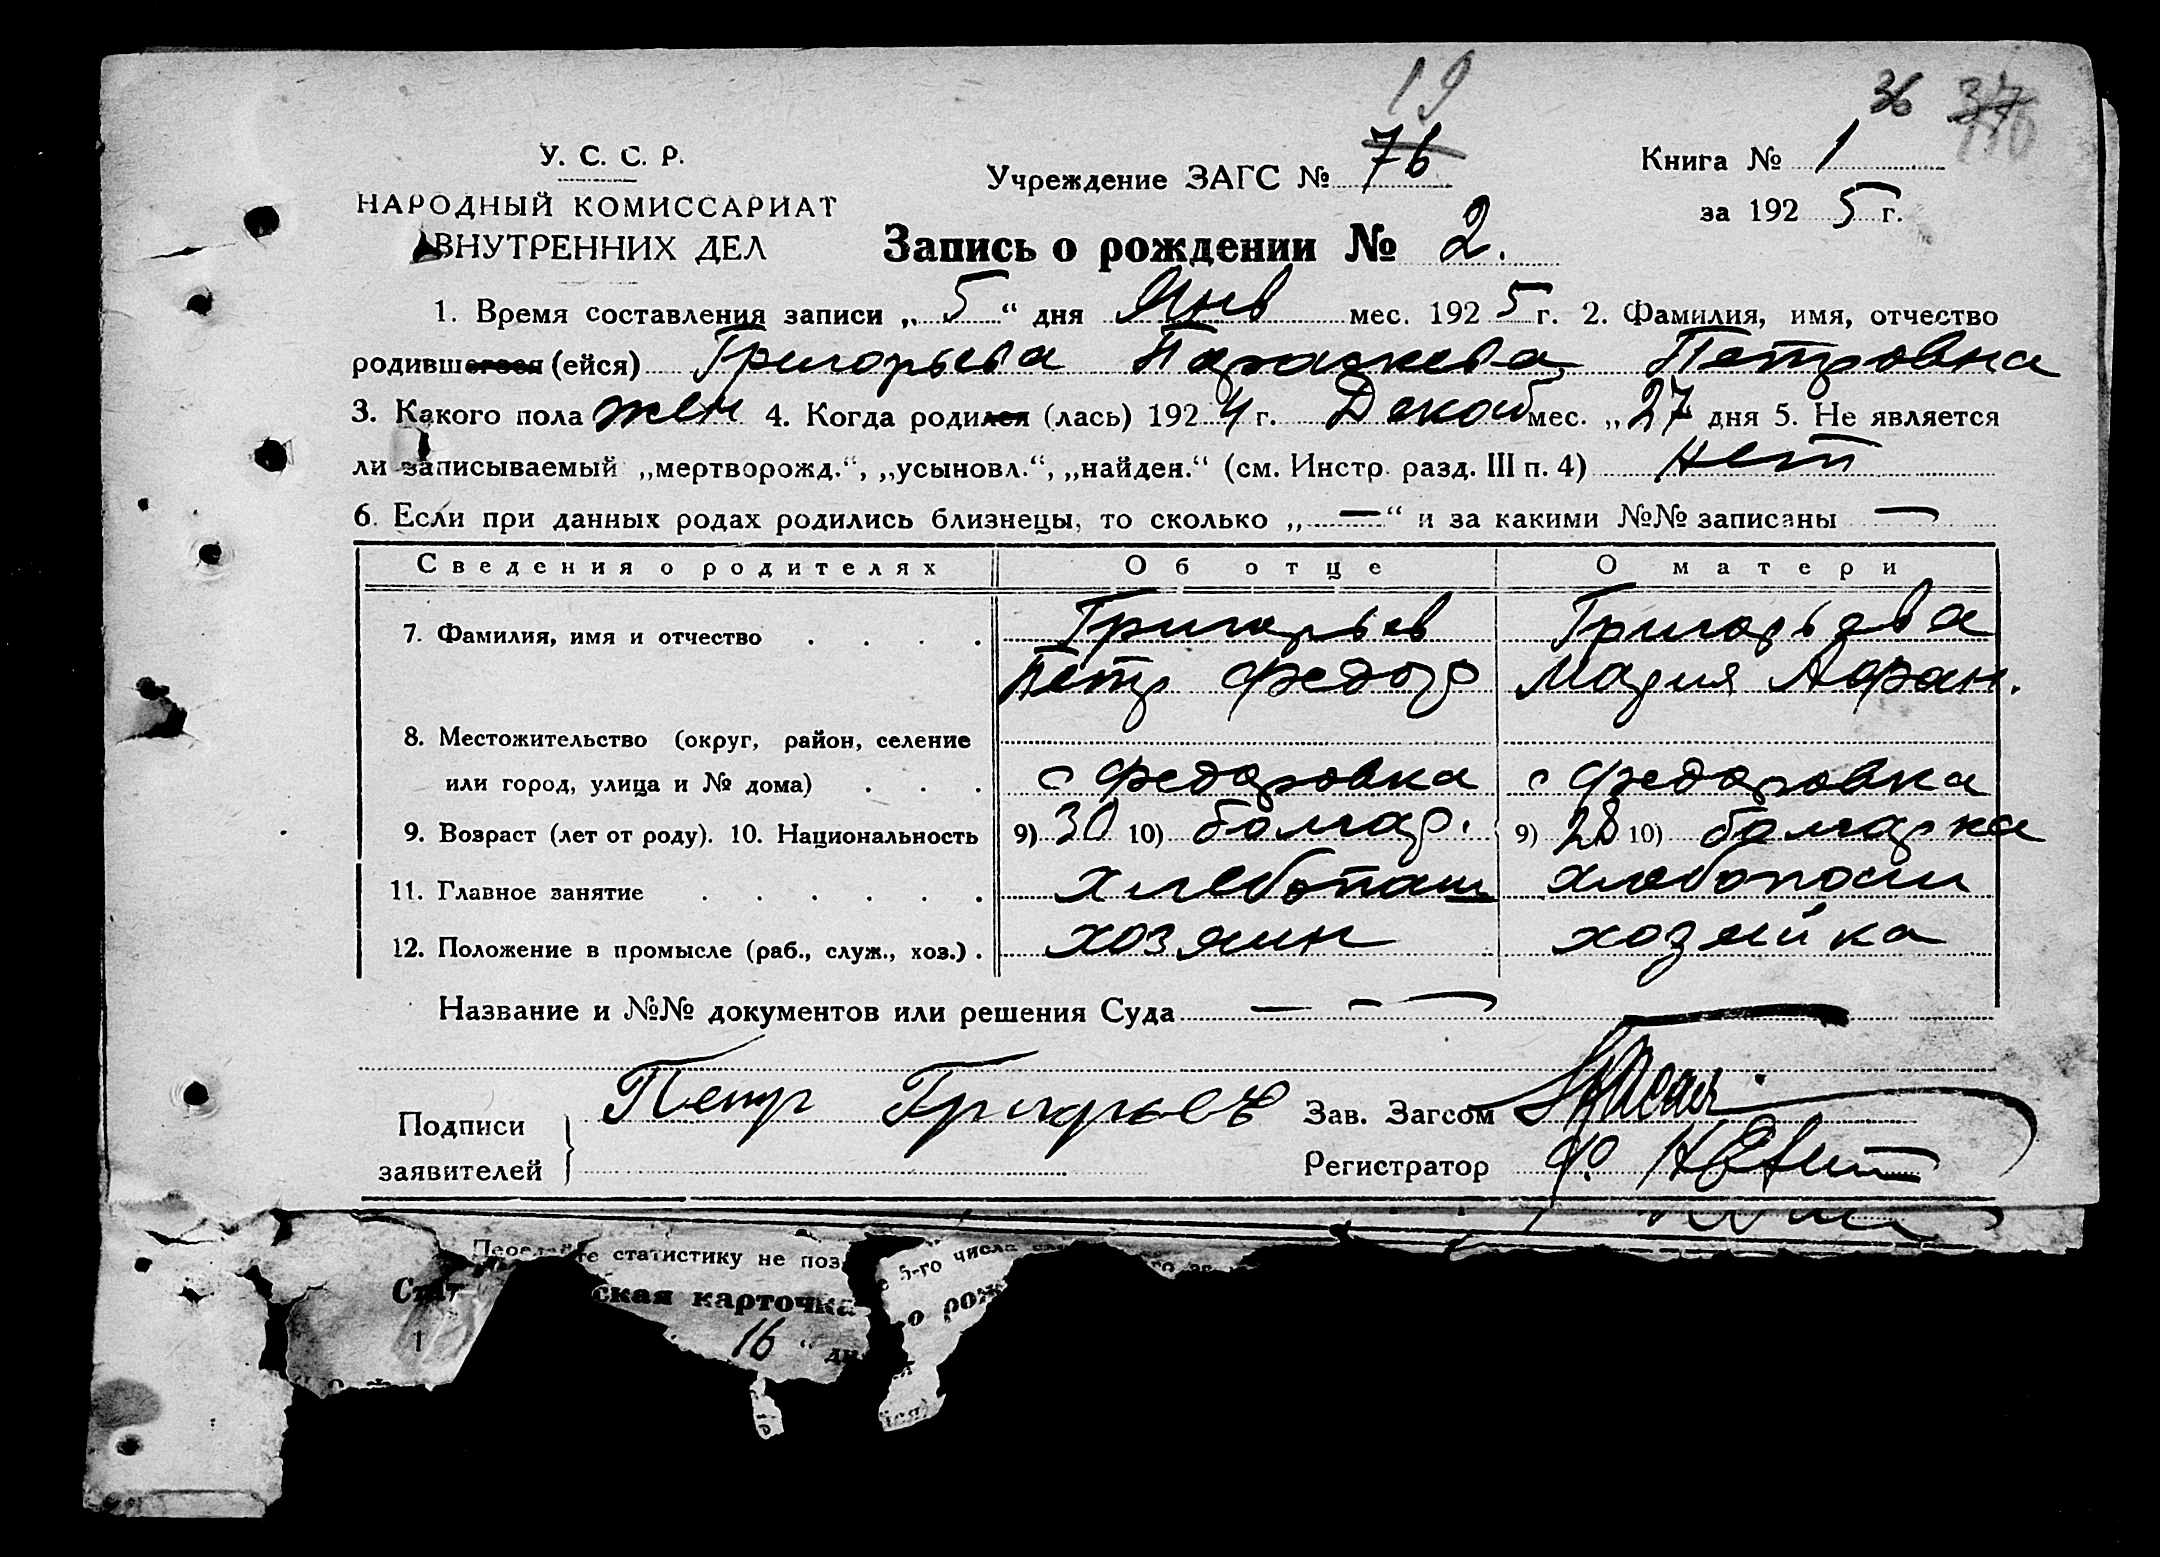 19
36 37
У. С. С. Р.
НАРОДНЫЙ КОМИССАРИАТ
ВНУТРЕННИХ ДЕЛ
Учреждение ЗАГС № 76
Книга № 1
за 1925 г.
Запись о рождении № 2.
1. Время составления записи „ 5 “ дня Янв мес. 1925 г. 2. Фамилия, имя, отчество
родившегося (ейся) Григорьева Параскева Петровна
3. Какого пола жен 4. Когда родился (лась) 1924 г. Декаб мес. „27 дня 5. Не является
ли записываемый „мертворожд.“, „усыновл.“, „найден.“ (см. Инстр. разд. III п. 4) нет
6. Если при данных родах родились близнецы, то сколько „ — “ и за какими №№ записаны —
Сведения о родителях Об отце О матери
7. Фамилия, имя и отчество . . . . Григорьев Григорьева
Петр Федор Мария Афан.
8. Местожительство (округ, район, селение
или город, улица и № дома) . . . с Федоровка с Федоровка
9. Возраст (лет от роду). 10. Национальность 9) 30 10) болгар. 9) 28 10) болгарка
11. Главное занятие . . . . . . хлебопаш хлебопаш
12. Положение в промысле (раб., служ., хоз.) . хозяин хозяйка
Название и №№ документов или решения Суда — — —
Подписи
заявителей
Петр Григорьев
Зав. Загсом
Регистратор
статистику не поз 5-го числа
Стат ская карточка о рож
1 16 “